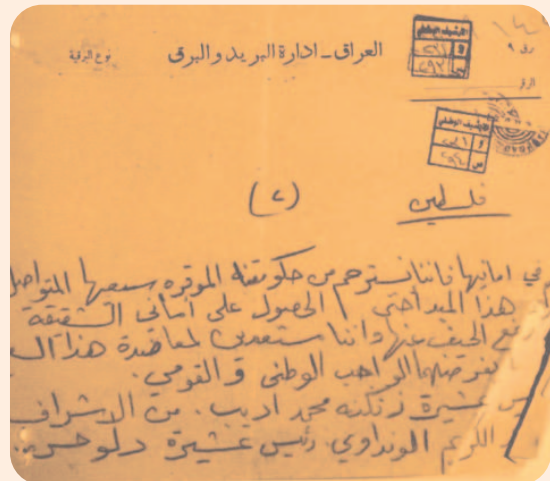 رقم ٩
العراق - ادارة البريد والبرق
نوع البرقية
الرقم
فلسطين
(٢)
في امانيها فاننا نسترحم من حكومتنا الموقره سعيها المتواصل
هذا المبدأ حتى الحصول على أماني الشقيقة
الحيف عنها واننا مستعدين لمعاضدة هذا
الواجب الوطني و القومي.
عشيرة زنكنه محمد اديب. من الاشراف
الكريم الونداوي رئيس عشيرة دلو